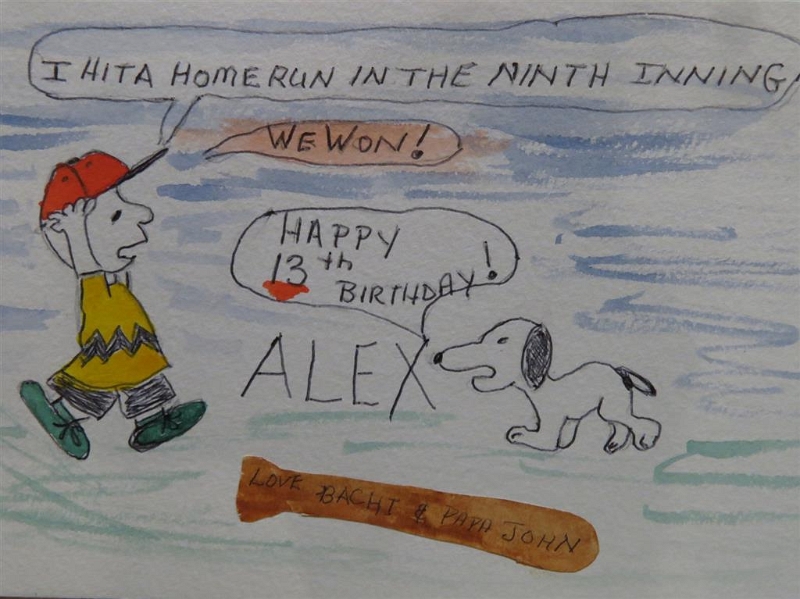 I HIT A HOMERUN IN THE NINTH INNING
WE WON!
HAPPY
13th
BIRTHDAY!
ALEX
LOVE BACHI & PAPA JOHN